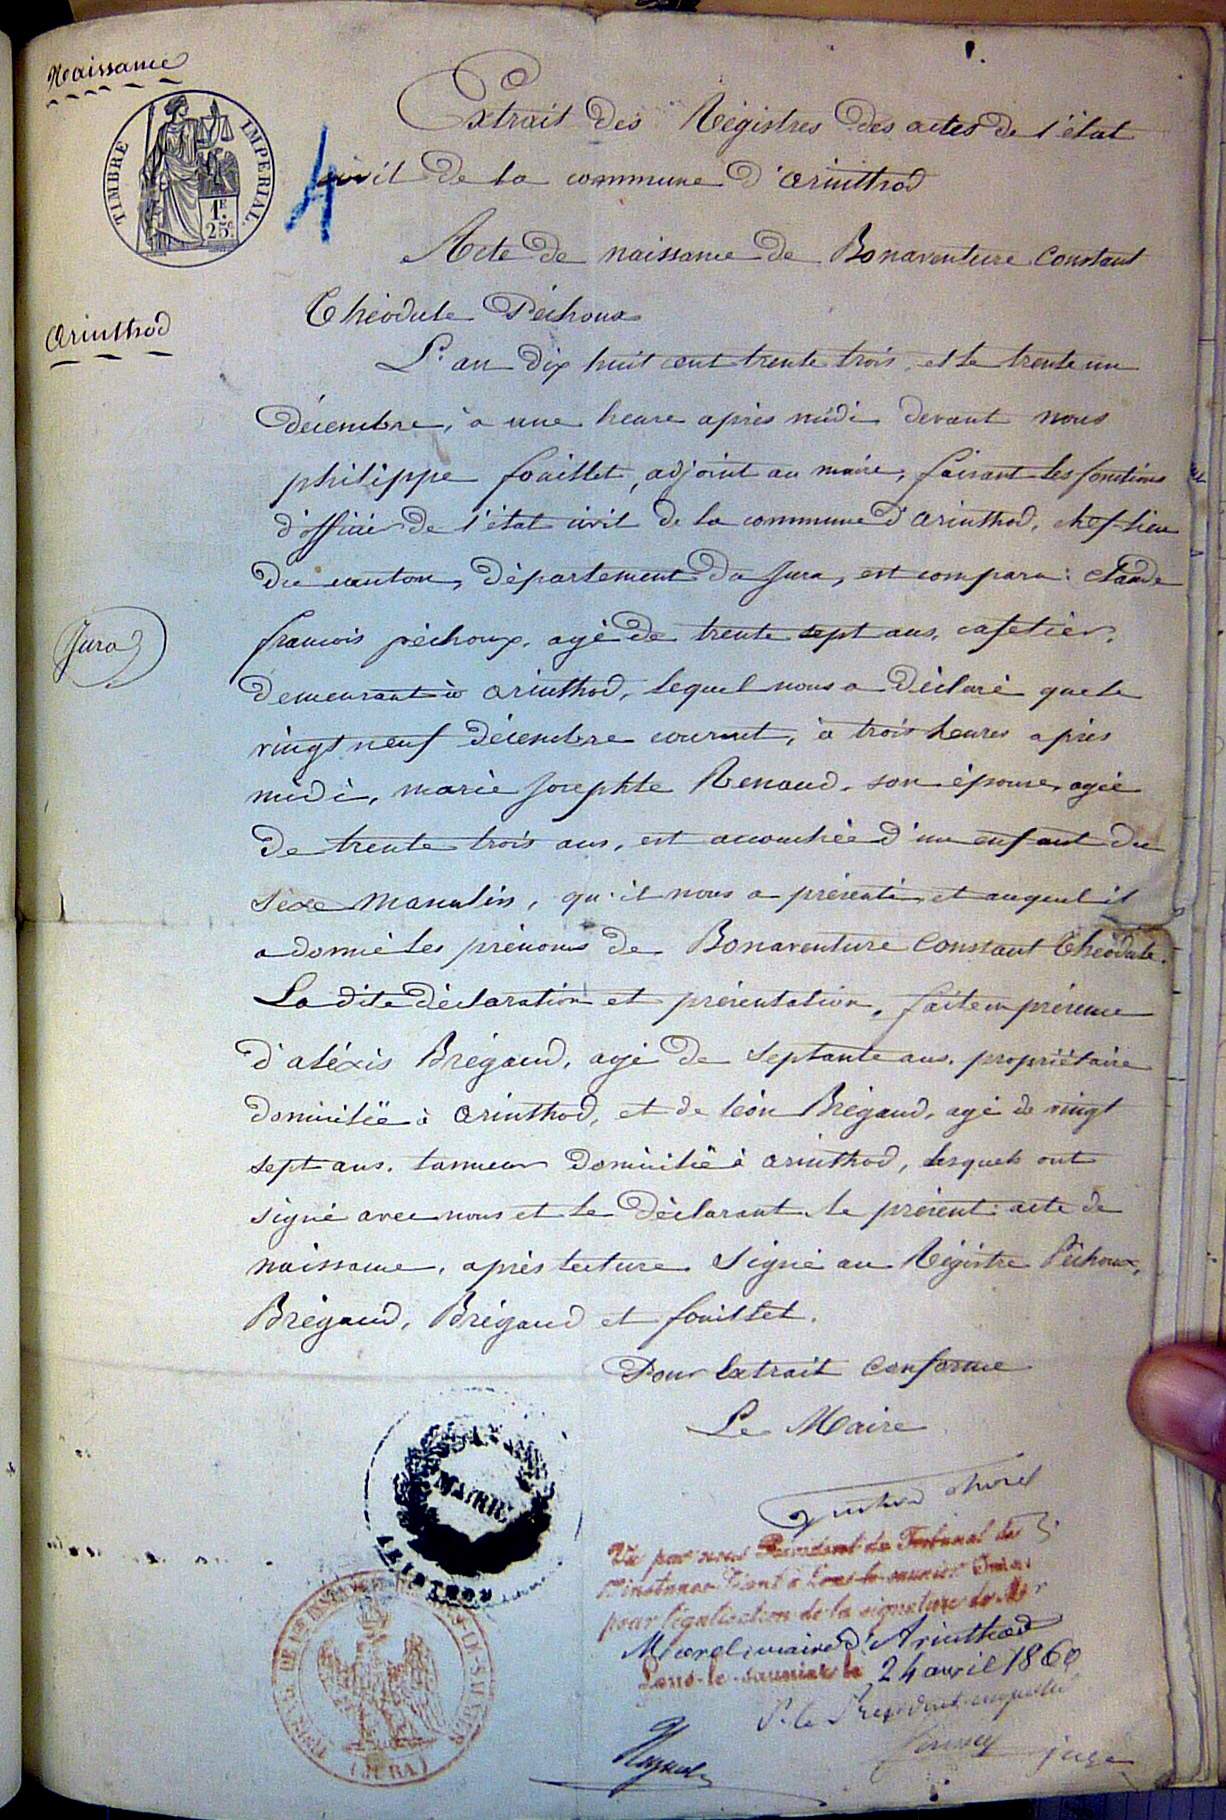 Naissance
TIMBRE IMPERIAL
1F.
25c.
4
Extrait des Régistres des actes de l'état
civil de la commune d'arinthod
Acte de naissance de Bonaventure Constant
Théodule Péchoux
Arinthod
L'an dix huit cent trente trois, et le trente un
décembre, à une heure après midi devant nous
philippe fouillet, adjoint au maire, faisant les fonctions
d'officier de l'état civil de la commune d'arinthod, chef-lieu
du canton, département du Jura, est comparu: Claude
francois péchoux, agé de trente sept ans, cafetier,
Jura
demeurant à arinthod, lequel nous a déclaré que le
vingt neuf décembre courant, à trois heures après
midi, marie Josephte Renaud, son épouse, agée
de trente trois ans, est accouchée d'un enfant du
séxe masculin, qu'il nous a présenté, et auquel il
a donné les prénoms de Bonaventure Constant Théodule.
La dite déclaration et présentation, faite en présence
d'aléxis Brégaud, agé de septante ans, propriétaire
domicilié à arinthod, et de léon Brégaud, agé de vingt
sept ans, tanneur domicilié à arinthod, lesquels ont
signé avec nous et le déclarant le présent acte de
naissance, après lecture. Signé au Régistre Péchoux,
Brégaud, Brégaud et fouillet.
Pour Extrait Conforme
Le Maire
MAIRIE
ARINTHOD
Vu par nous Président du Tribunal de
1re instance séant à Lons-le-saunier Jura
pour légalisation de la signature de Mr
Morel, maire d'Arinthod
Lons-le-saunier le 24 avril 1860
P. le Président empêché
juge
TRIBUNAL DE 1re INSTANCE DE LONS-LE-SAUNIER
(JURA)